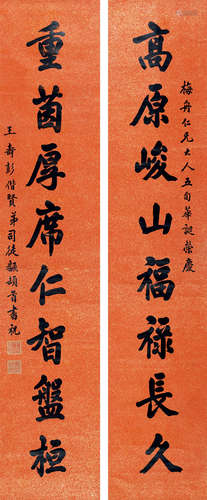 梅舟仁兄大人五旬華誕榮慶
高原峻山福祿長久
重茵厚席仁智盤桓
王壽彭偕賢弟司徒顥頓首書祝